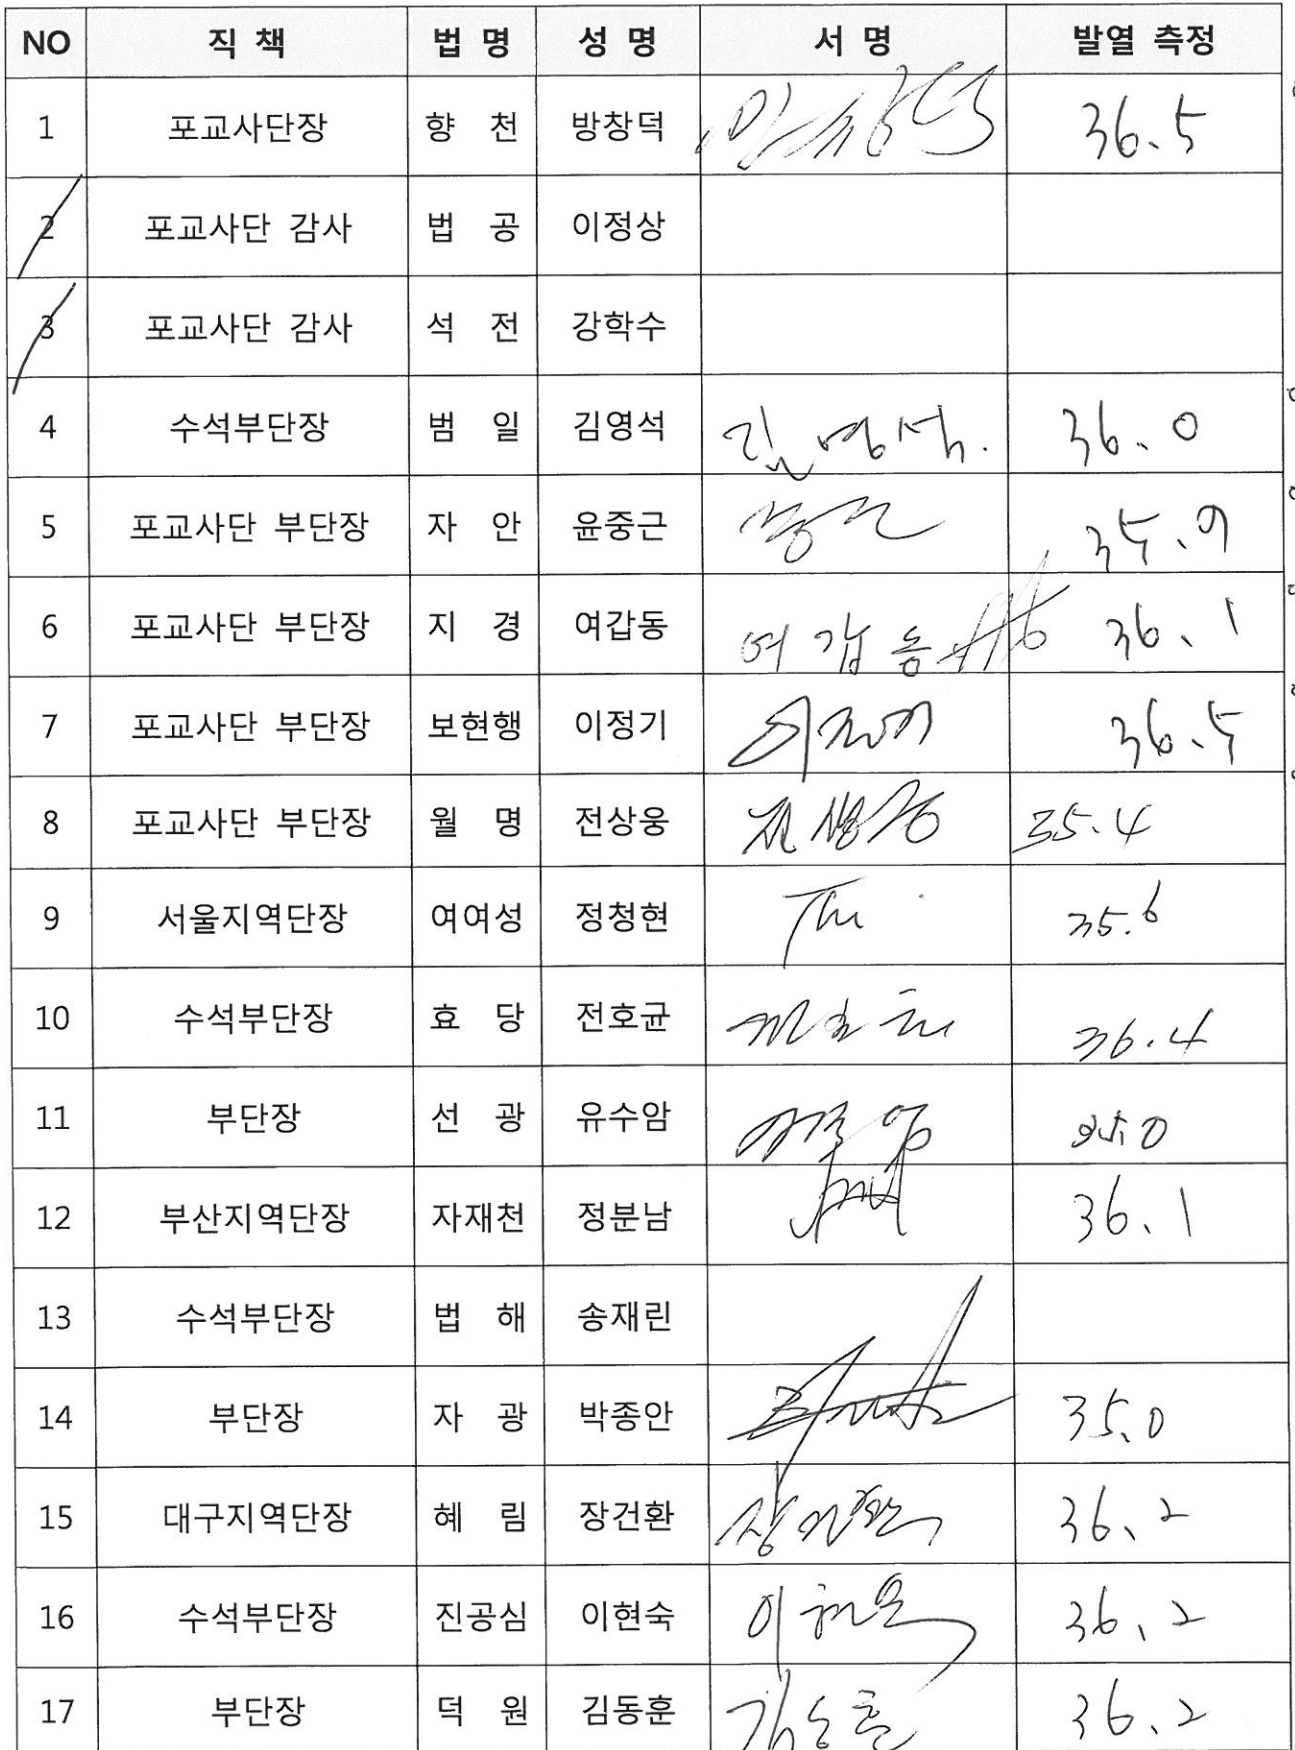 NO 직 책 법 명 성 명 서 명 발열 측정
1 포교사단장 향 천 방창덕 방창덕 36.5
2 포교사단 감사 법 공 이정상
3 포교사단 감사 석 전 강학수
4 수석부단장 범 일 김영석 김영석. 36.0
5 포교사단 부단장 자 안 윤중근 중근 35.9
6 포교사단 부단장 지 경 여갑동 여갑동 36.1
7 포교사단 부단장 보현행 이정기 이정기 36.5
8 포교사단 부단장 월 명 전상웅 전상웅 35.4
9 서울지역단장 여여성 정청현 35.6
10 수석부단장 효 당 전호균 전호균 36.4
11 부단장 선 광 유수암 35.0
12 부산지역단장 자재천 정분남 36.1
13 수석부단장 법 해 송재린
14 부단장 자 광 박종안 35.0
15 대구지역단장 혜 림 장건환 장건환 36.2
16 수석부단장 진공심 이현숙 이현숙 36.2
17 부단장 덕 원 김동훈 김동훈 36.2